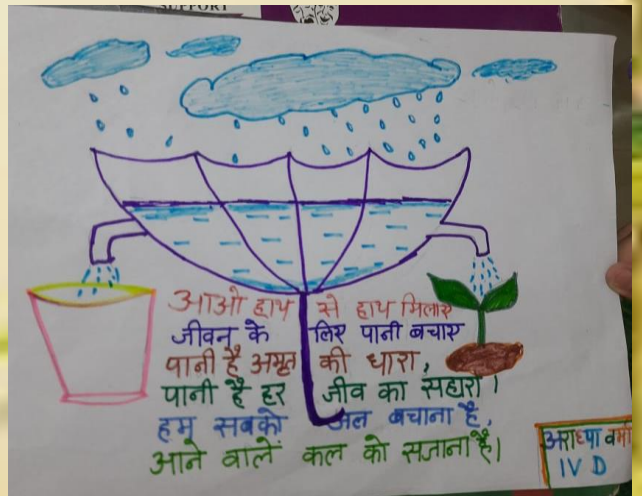 SUPPORT
आओ हाथ से हाथ मिलाए
जीवन के लिए पानी बचाए
पानी है अमृत की धारा,
पानी है हर जीव का सहारा।
हम सबको जल बचाना है,
आने वालें कल को सजाना है।
अराध्या वर्मा
IV D